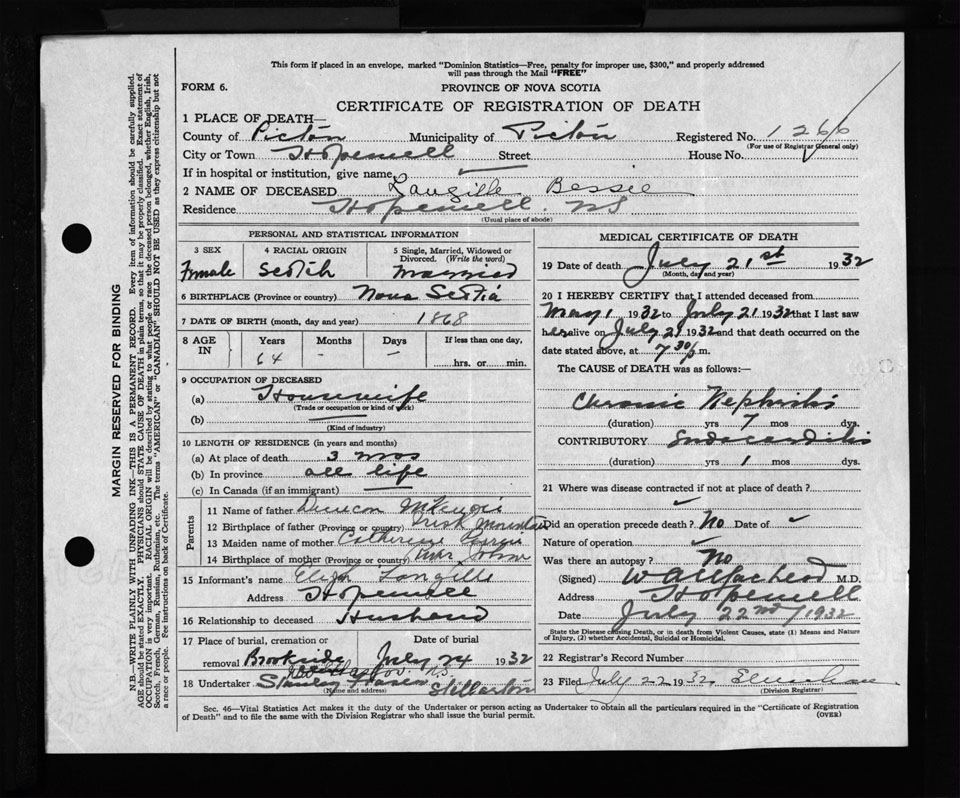 This form if placed in an envelope, marked "Dominion Statistics—Free, penalty for improper use, $300," and properly addressed
will pass through the Mail "FREE"
FORM 6.
PROVINCE OF NOVA SCOTIA
CERTIFICATE OF REGISTRATION OF DEATH
1 PLACE OF DEATH—
County of Pictou Municipality of Pictou Registered No. 1266
(For use of Registrar General only)
City or Town Hopewell Street House No.
If in hospital or institution, give name
2 NAME OF DECEASED Langille Bessie
Residence Hopewell NS
(Usual place of abode)
PERSONAL AND STATISTICAL INFORMATION
3 SEX 4 RACIAL ORIGIN 5 Single, Married, Widowed or Divorced. (Write the word)
Female Scotch Married
6 BIRTHPLACE (Province or country) Nova Scotia
7 DATE OF BIRTH (month, day and year) 1868
8 AGE IN Years Months Days If less than one day,
64 - - hrs. or min.
9 OCCUPATION OF DECEASED
(a) Housewife
(Trade or occupation or kind of work)
(b)
(Kind of industry)
10 LENGTH OF RESIDENCE (in years and months)
(a) At place of death 3 mos
(b) In province all life
(c) In Canada (if an immigrant)
Parents
11 Name of father Duncan McKenzie
12 Birthplace of father (Province or country) Irish Mountain
13 Maiden name of mother Catherine
14 Birthplace of mother (Province or country)
15 Informant's name Langille
Address Hopewell
16 Relationship to deceased Husband
17 Place of burial, cremation or removal Date of burial
Brookside July 24 1932
18 Undertaker Stanley Stellarton
(Name and address)
MEDICAL CERTIFICATE OF DEATH
19 Date of death July 21st 1932
(Month, day and year)
20 I HEREBY CERTIFY that I attended deceased from
May 1 1932 to July 21 1932 that I last saw
her alive on July 21 1932 and that death occurred on
date stated above, at 7 30 p.m.
The CAUSE of DEATH was as follows:—
Chronic Nephritis
(duration) yrs 7 mos dys.
CONTRIBUTORY Endocarditis
(duration) yrs 1 mos dys.
21 Where was disease contracted if not at place of death?
Did an operation precede death? No Date of
Nature of operation
Was there an autopsy? No
(Signed) M.D.
Address Hopewell
Date July 22nd / 1932
State the Disease causing Death, or in death from Violent Causes, state (1) Means and Nature
of Injury, (2) whether Accidental, Suicidal or Homicidal.
22 Registrar's Record Number
23 Filed July 22 1932
(Division Registrar)
Sec. 46—Vital Statistics Act makes it the duty of the Undertaker or person acting as Undertaker to obtain all the particulars required in the "Certificate of Registration
of Death" and to file the same with the Division Registrar who shall issue the burial permit. (OVER)
MARGIN RESERVED FOR BINDING
N.B.—WRITE PLAINLY WITH UNFADING INK—THIS IS A PERMANENT RECORD. Every item of information should be carefully supplied.
AGE should be stated EXACTLY. PHYSICIANS should STATE CAUSE OF DEATH in plain terms, so that it may be properly classified. Exact statement of
OCCUPATION is very important. RACIAL ORIGIN will be described by stating to what people or race the deceased person belonged, whether English, Irish,
Scotch, French, German, Russian, Ruthenian, etc. The terms "AMERICAN" or "CANADIAN" SHOULD NOT BE USED as they express citizenship but not
a race or people. See instructions on back of Certificate.